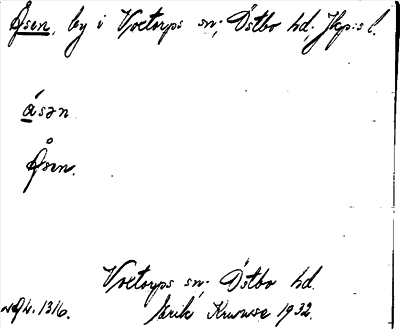 Åsen, by i Voxtorps sn; Östbo hd; Jkp:s l.
åsən
Åsen.
Voxtorps sn; Östbo hd.
1316. Erik Kruuse 1932.